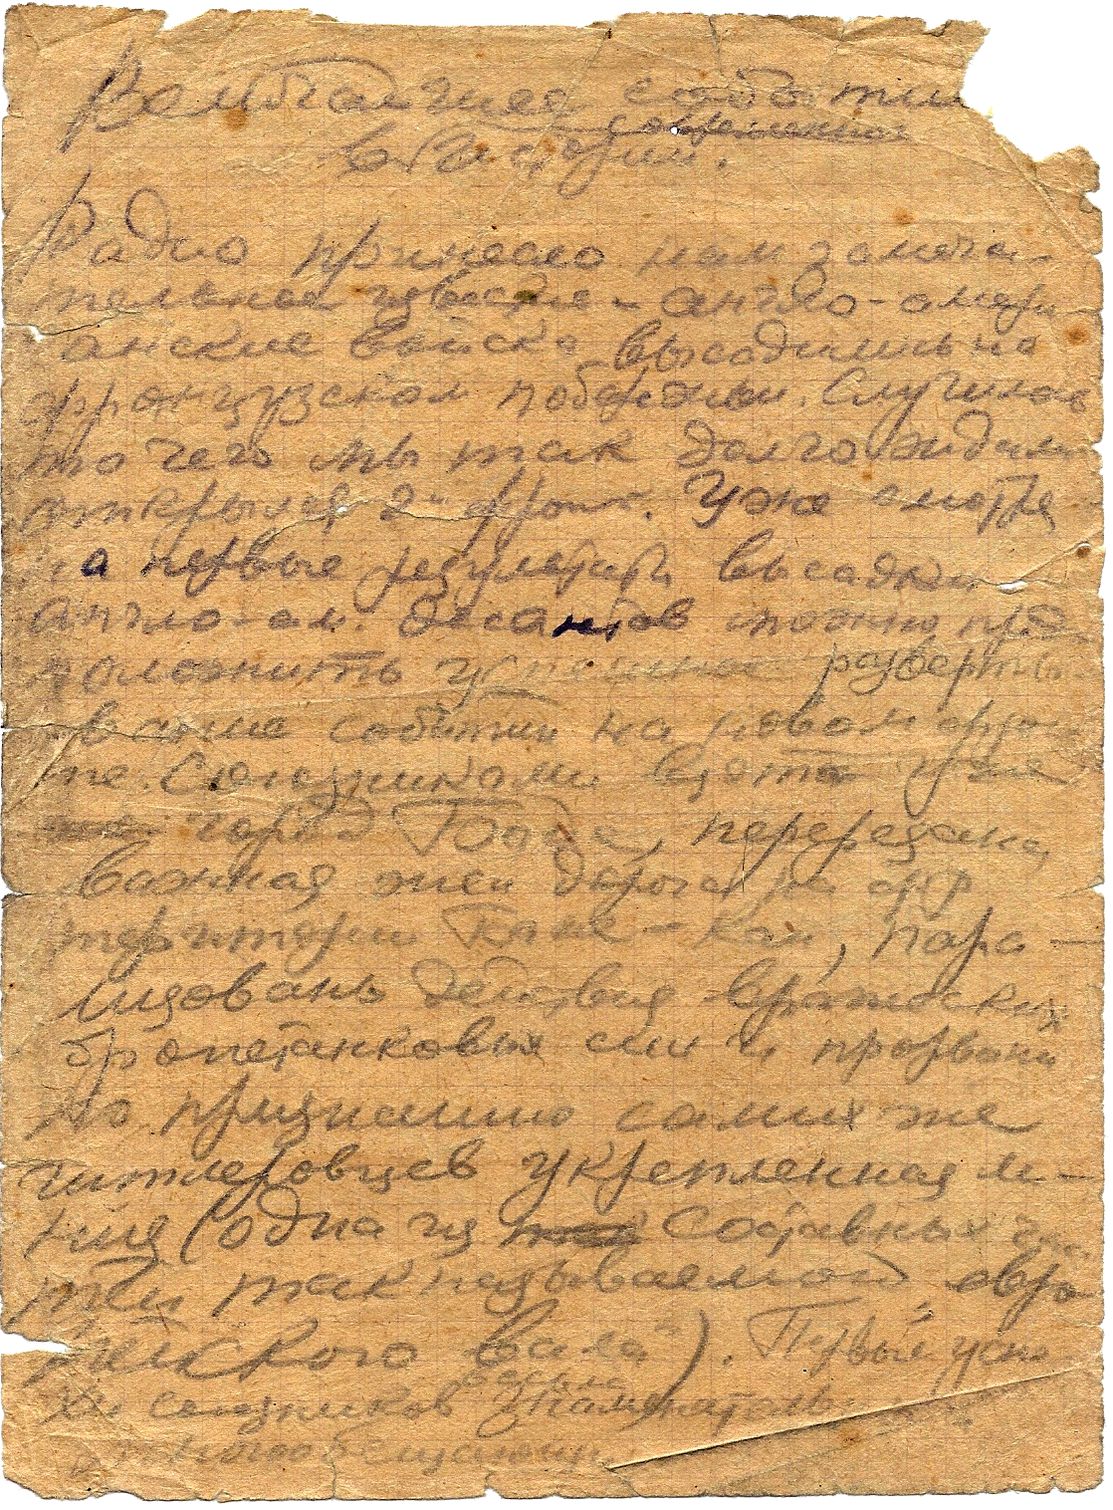 Величайшее событие
современной
в Истории.
Радио принесло нам замеча-
тельное известие - англо-амери
канские войска высадились на
французском побережьи. Случилось
то чего мы так долго ждали
открылся 2й фронт. Уже смотря
на первые результаты высадки
Англо-ам. десантов можно пред
положить успешное разверты-
вание событий на новом фрон-
те. Союзниками взят уже
город перерезана
важная жел дорога на
территории Кан, пара-
лизованы действия вражеских
бронетанковых сил и прорвана
по признанию самих же
гитлеровцев укрепленная ли-
ния (одна из составных час
тей так называемой евро
пейского вала"). Первые успе
весьма
хи союзников знаменательны
и многообещающи.